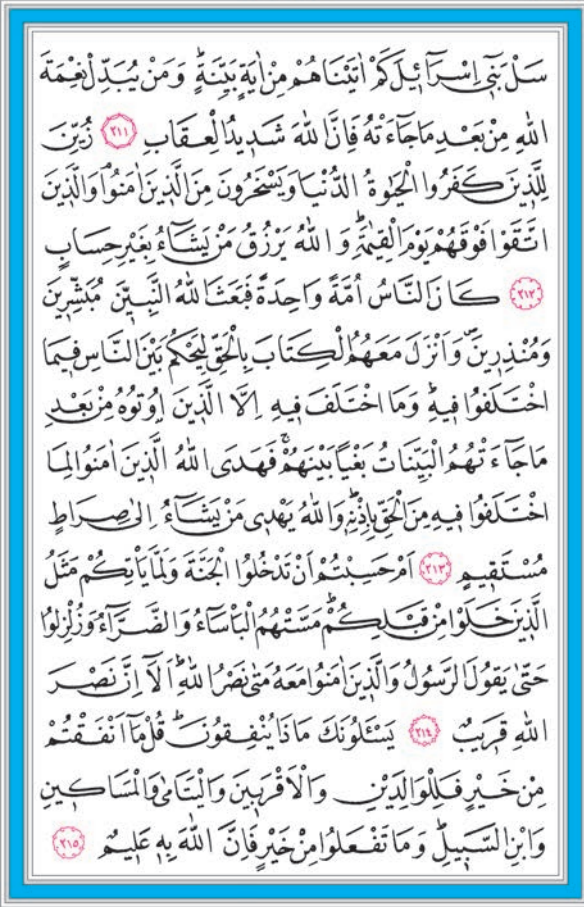 سَلْ بَنٖٓي اِسْرَٓائٖيلَ كَمْ اٰتَيْنَاهُمْ مِنْ اٰيَةٍ بَيِّنَةٍؕ وَمَنْ يُبَدِّلْ نِعْمَةَ
اللّٰهِ مِنْ بَعْدِ مَا جَٓاءَتْهُ فَاِنَّ اللّٰهَ شَدٖيدُ الْعِقَابِ ﴿٢١١﴾ زُيِّنَ
لِلَّذٖينَ كَفَرُوا الْحَيٰوةُ الدُّنْيَا وَيَسْخَرُونَ مِنَ الَّذٖينَ اٰمَنُواۘ وَالَّذٖينَ
اتَّقَوْا فَوْقَهُمْ يَوْمَ الْقِيٰمَةِؕ وَاللّٰهُ يَرْزُقُ مَنْ يَشَٓاءُ بِغَيْرِ حِسَابٍ
﴿٢١٢﴾ كَانَ النَّاسُ اُمَّةً وَاحِدَةً فَبَعَثَ اللّٰهُ النَّبِيّٖنَ مُبَشِّرٖينَ
وَمُنْذِرٖينَࣕ وَاَنْزَلَ مَعَهُمُ الْكِتَابَ بِالْحَقِّ لِيَحْكُمَ بَيْنَ النَّاسِ فٖيمَا
اخْتَلَفُوا فٖيهِؕ وَمَا اخْتَلَفَ فٖيهِ اِلَّا الَّذٖينَ اُو۫تُوهُ مِنْ بَعْدِ
مَا جَٓاءَتْهُمُ الْبَيِّنَاتُ بَغْيًا بَيْنَهُمْۚ فَهَدَى اللّٰهُ الَّذٖينَ اٰمَنُوا لِمَا
اخْتَلَفُوا فٖيهِ مِنَ الْحَقِّ بِاِذْنِهٖؕ وَاللّٰهُ يَهْدٖي مَنْ يَشَٓاءُ اِلٰى صِرَاطٍ
مُسْتَقٖيمٍ ﴿٢١٣﴾ اَمْ حَسِبْتُمْ اَنْ تَدْخُلُوا الْجَنَّةَ وَلَمَّا يَأْتِكُمْ مَثَلُ
الَّذٖينَ خَلَوْا مِنْ قَبْلِكُمْؕ مَسَّتْهُمُ الْبَأْسَٓاءُ وَالضَّرَّٓاءُ وَزُلْزِلُوا
حَتّٰى يَقُولَ الرَّسُولُ وَالَّذٖينَ اٰمَنُوا مَعَهُ مَتٰى نَصْرُ اللّٰهِؕ اَلَٓا اِنَّ نَصْرَ
اللّٰهِ قَرٖيبٌ ﴿٢١٤﴾ يَسْـَٔلُونَكَ مَاذَا يُنْفِقُونَؕ قُلْ مَٓا اَنْفَقْتُمْ
مِنْ خَيْرٍ فَلِلْوَالِدَيْنِ وَالْاَقْرَبٖينَ وَالْيَتَامٰى وَالْمَسَاكٖينِ
وَابْنِ السَّبٖيلِؕ وَمَا تَفْعَلُوا مِنْ خَيْرٍ فَاِنَّ اللّٰهَ بِهٖ عَلٖيمٌ ﴿٢١٥﴾